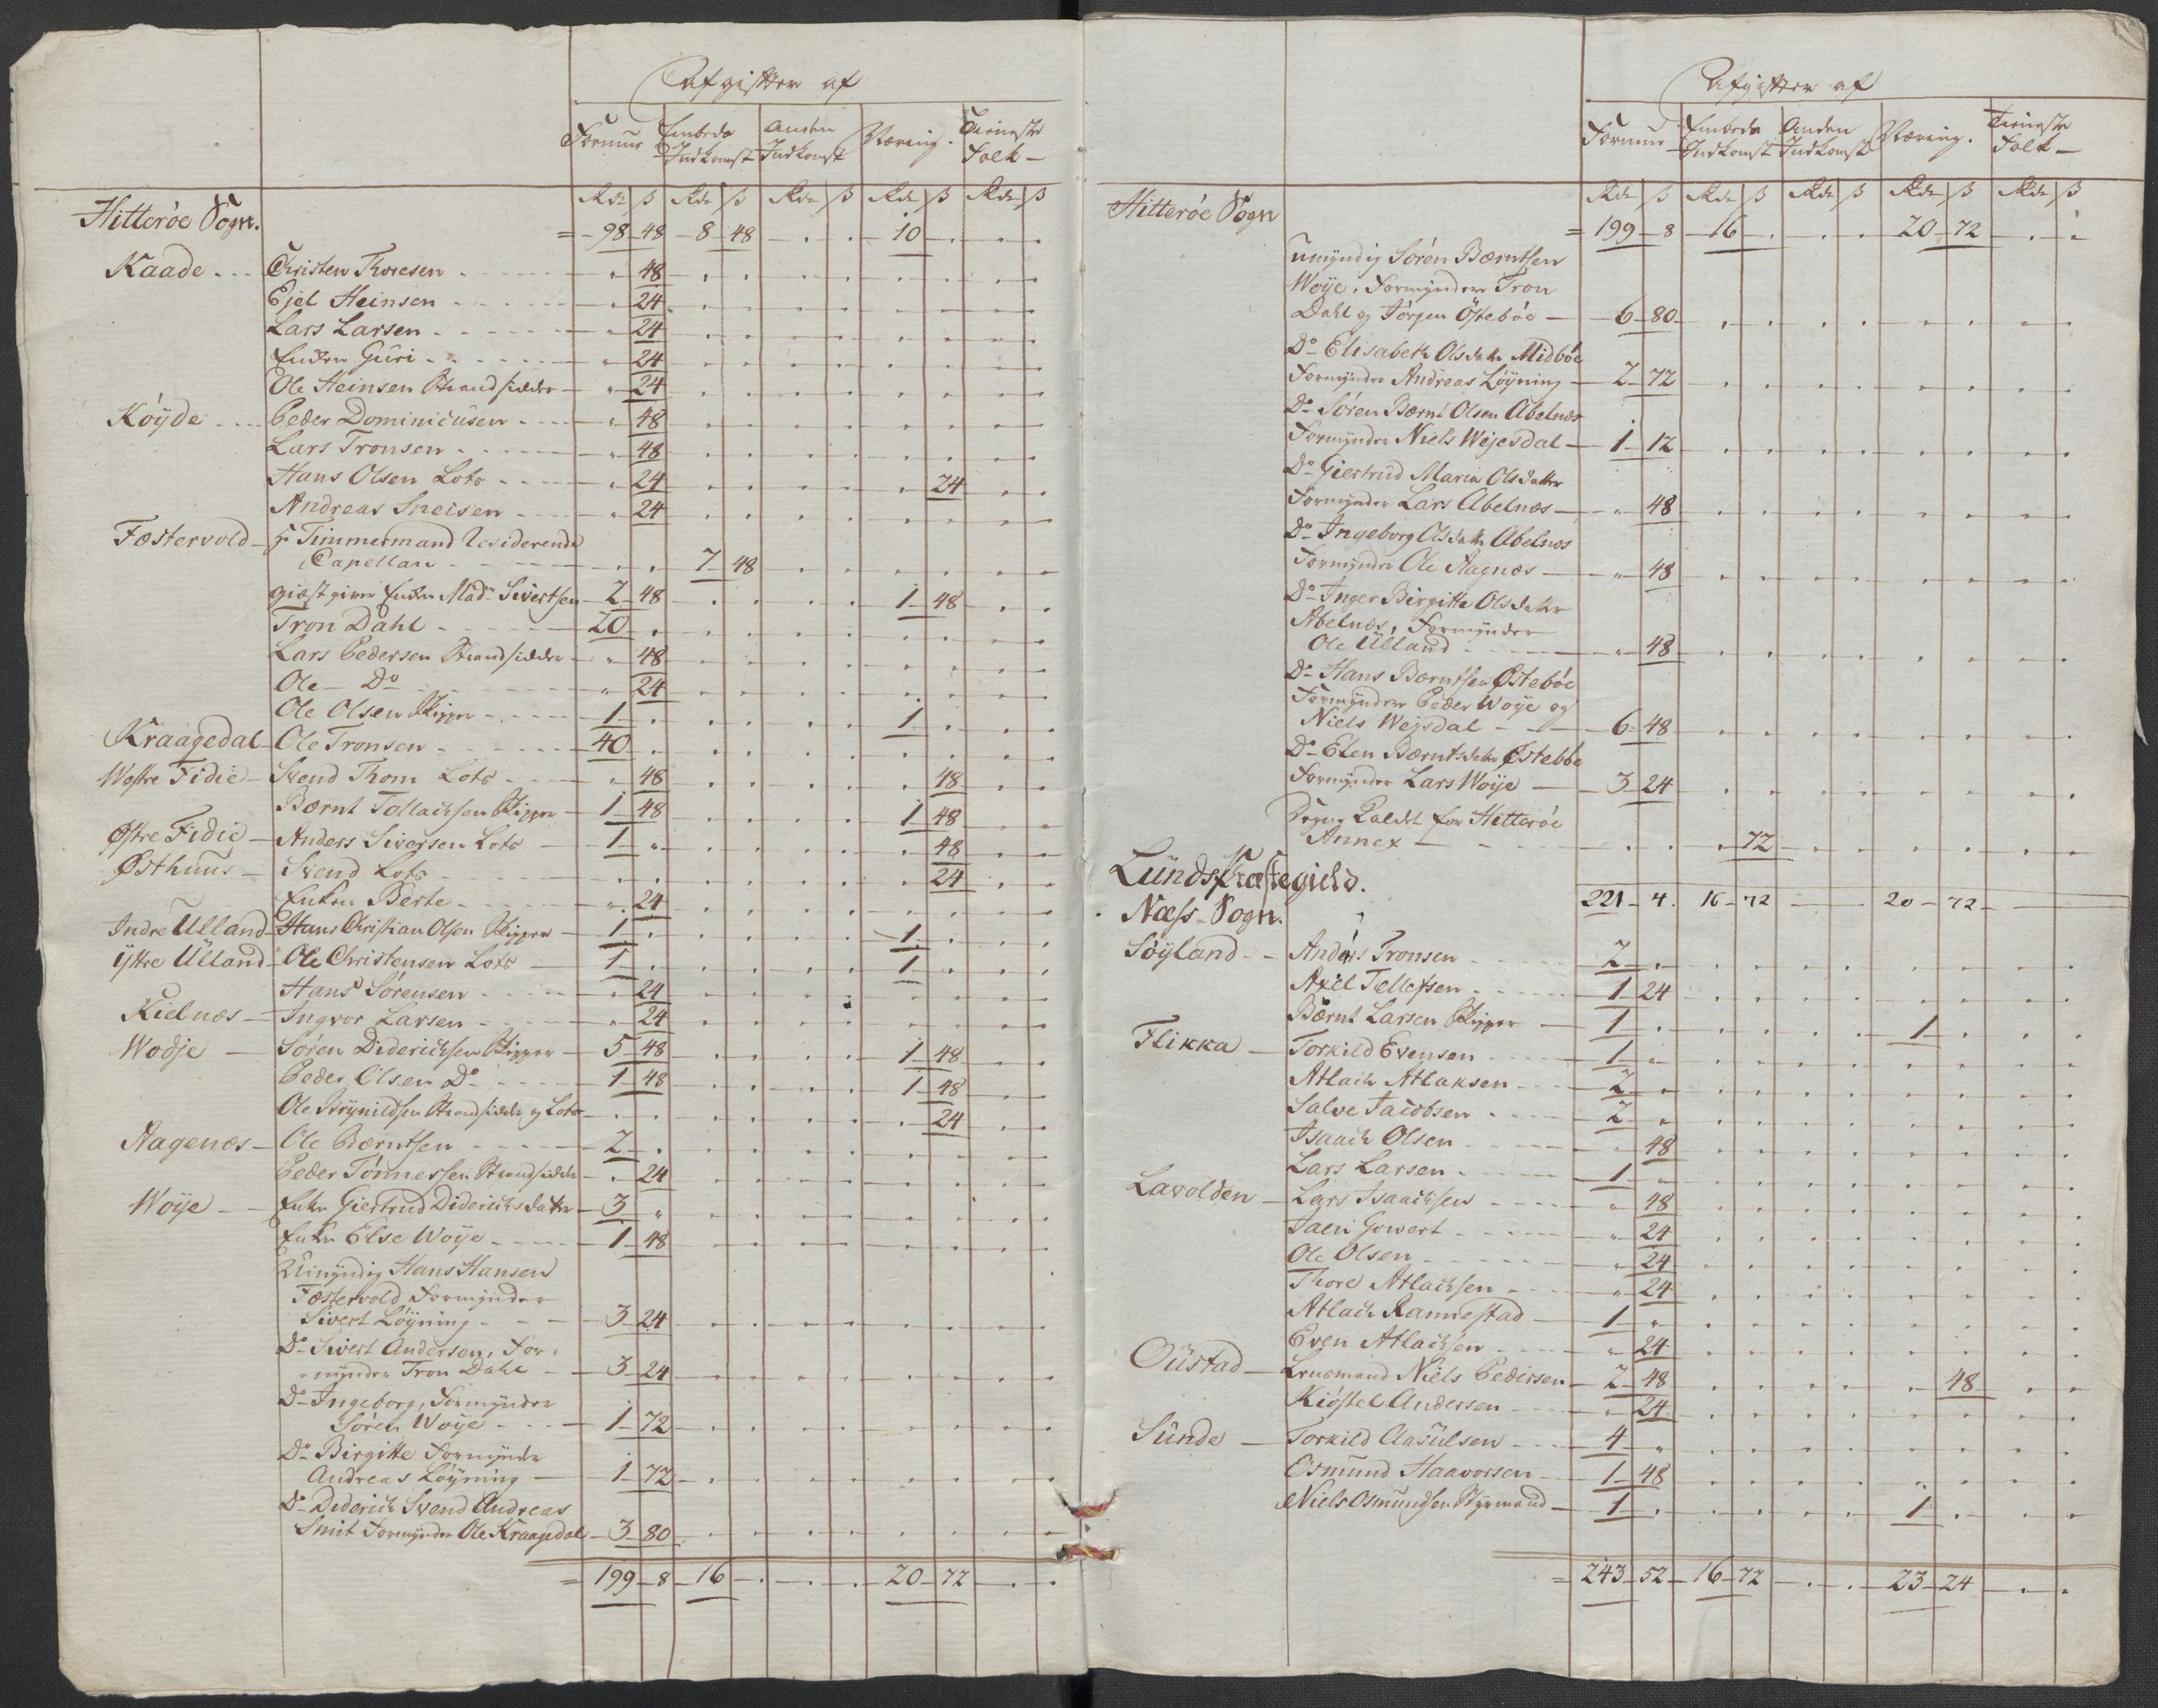 Afgifter af
Formue Embeds Indkomst Anden Indkomst Næring. Tieneste Folk
Rdr ß Rdr ß Rdr ß Rdr ß Rdr ß
Hitterøe Sogn. = 98 48 8 48 . . 10 . . .
Kaade Christen Thoresen " 48
Ejel Heinsen " 24
Lars Larsen " 24
Enken Guri " 24
Ole Heinsen Strandsidder " 24
Køyde Peder Dominicusen " 48
Lars Tronsen " 48
Hans Olsen Lots " 24 . . . . " 24
Andreas Sneisen " 24
Fæstervold Hr Timmermand Residerende
Capellan . . 7 48
giæstgiver Enken Mad: Sivertsen 2 48 . . . . 1 48
Tron Dahl 20 .
Lars Pedersen Strandsidder " 48
Ole Do " 24
Ole Olsen Skipper 1 . . . . . 1 .
Kraagedal Ole Tronsen 40 .
Westre Fidie Svend Thom Lots " 48 . . . . . 48
Bærnt Tollachsen Skipper 1 48 . . . . 1 48
Østre Fidie Anders Siversen Lots 1 " . . . . . 48
Østhuus Svend Lots . . . . . . . 24
Enken Berte " 24
Indre Ulland Hans Christian Olsen Skipper 1 . . . . . 1 .
Yttre Ulland Ole Christensen Lots 1 . . . . . 1 .
Hans Sørensen " 24
Kielnæs Ingvor Larsen " 24
Wodje Søren Diderichsen Skipper 5 48 . . . . 1 48
Peder Olsen Do 1 48 . . . . 1 48
Ole Brynildsen Strandsidder og Lots . . . . . . . 24
Aagenæs Ole Bærntsen 2 .
Peder Tønnessen Strandsidder . 24
Woye Enke Giertrud Diderichsdatter 3 "
Enke Else Woye 1 48
Umyndig Hans Hansen
Fæstervold Formynder
Sivert Løyning 3 24
Do Sivert Andersen, For-
mynder Tron Dahl 3 24
Do Ingeborg, Formynder
Søren Woye 1 72
Do Birgitte Formynder
Andreas Løyning 1 72
Do Diderich Svend Andreas
Smit Formynder Ole Kraagedal 3 80
= 199 8 16 . . . 20 72 . .
Afgifter af
Formue Embeds Indkomst Anden Indkomst Næring. Tieneste Folk
Rdr ß Rdr ß Rdr ß Rdr ß Rdr ß
Hitterøe Sogn = 199 8 16 . . . 20 72 . .
Umyndig Søren Bærntsen
Woye, Formyndere Tron
Dahl og Jørgen Østebøe 6 80
Do Elisabeth Olsdatter Midbøe
Formynder Andreas Løyning 2 72
Do Søren Bærnt Olsen Abelnæs
Formynder Niels Wejesdal 1 12
Do Giertrud Maria Olsdatter
Formynder Lars Abelnæs " 48
Do Ingeborg Olsdatter Abelnæs
Formynder Ole Aagnæs " 48
Do Inger Birgitte Olsdatter
Abelnæs, Formynder
Ole Ulland " 48
Do Hans Bærntsen Østebøe
Formyndere Peder Woye og
Niels Weysdal 6 48
Do Elen Bærntsdatter Østebøe
Formynder Lars Woye 3 24
Sogne Kaldet for Hitterøe
Annex . . . 72
Lunds Præstegield.
221 4 16 72 20 72
Næss Sogn.
Søyland Anders Tronsen 2 .
Axel Tellefsen 1 24
Bærnt Larsen Skipper 1 . . . . . 1 .
Flikka Torkild Evensen 1 "
Atlach Atlaksen 2 "
Salve Jacobsen 2 "
Isaach Olsen " 48
Lars Larsen 1 "
Lavolden Lars Isaachsen " 48
Jaen Gowert " 24
Ole Olsen " 24
Thore Atlachsen " 24
Atlach Rannestad 1 "
Even Atlachsen " 24
Oustad Lensmand Niels Pedersen 2 48 . . . . " 48
Kiøstel Andersen " 24
Sunde Torkild Aasulsen 4 "
Osmund Haavorsen 1 48
Niels Osmundsen Styrmand 1 . . . . . 1 .
= 243 52 16 72 . . 23 24 . .